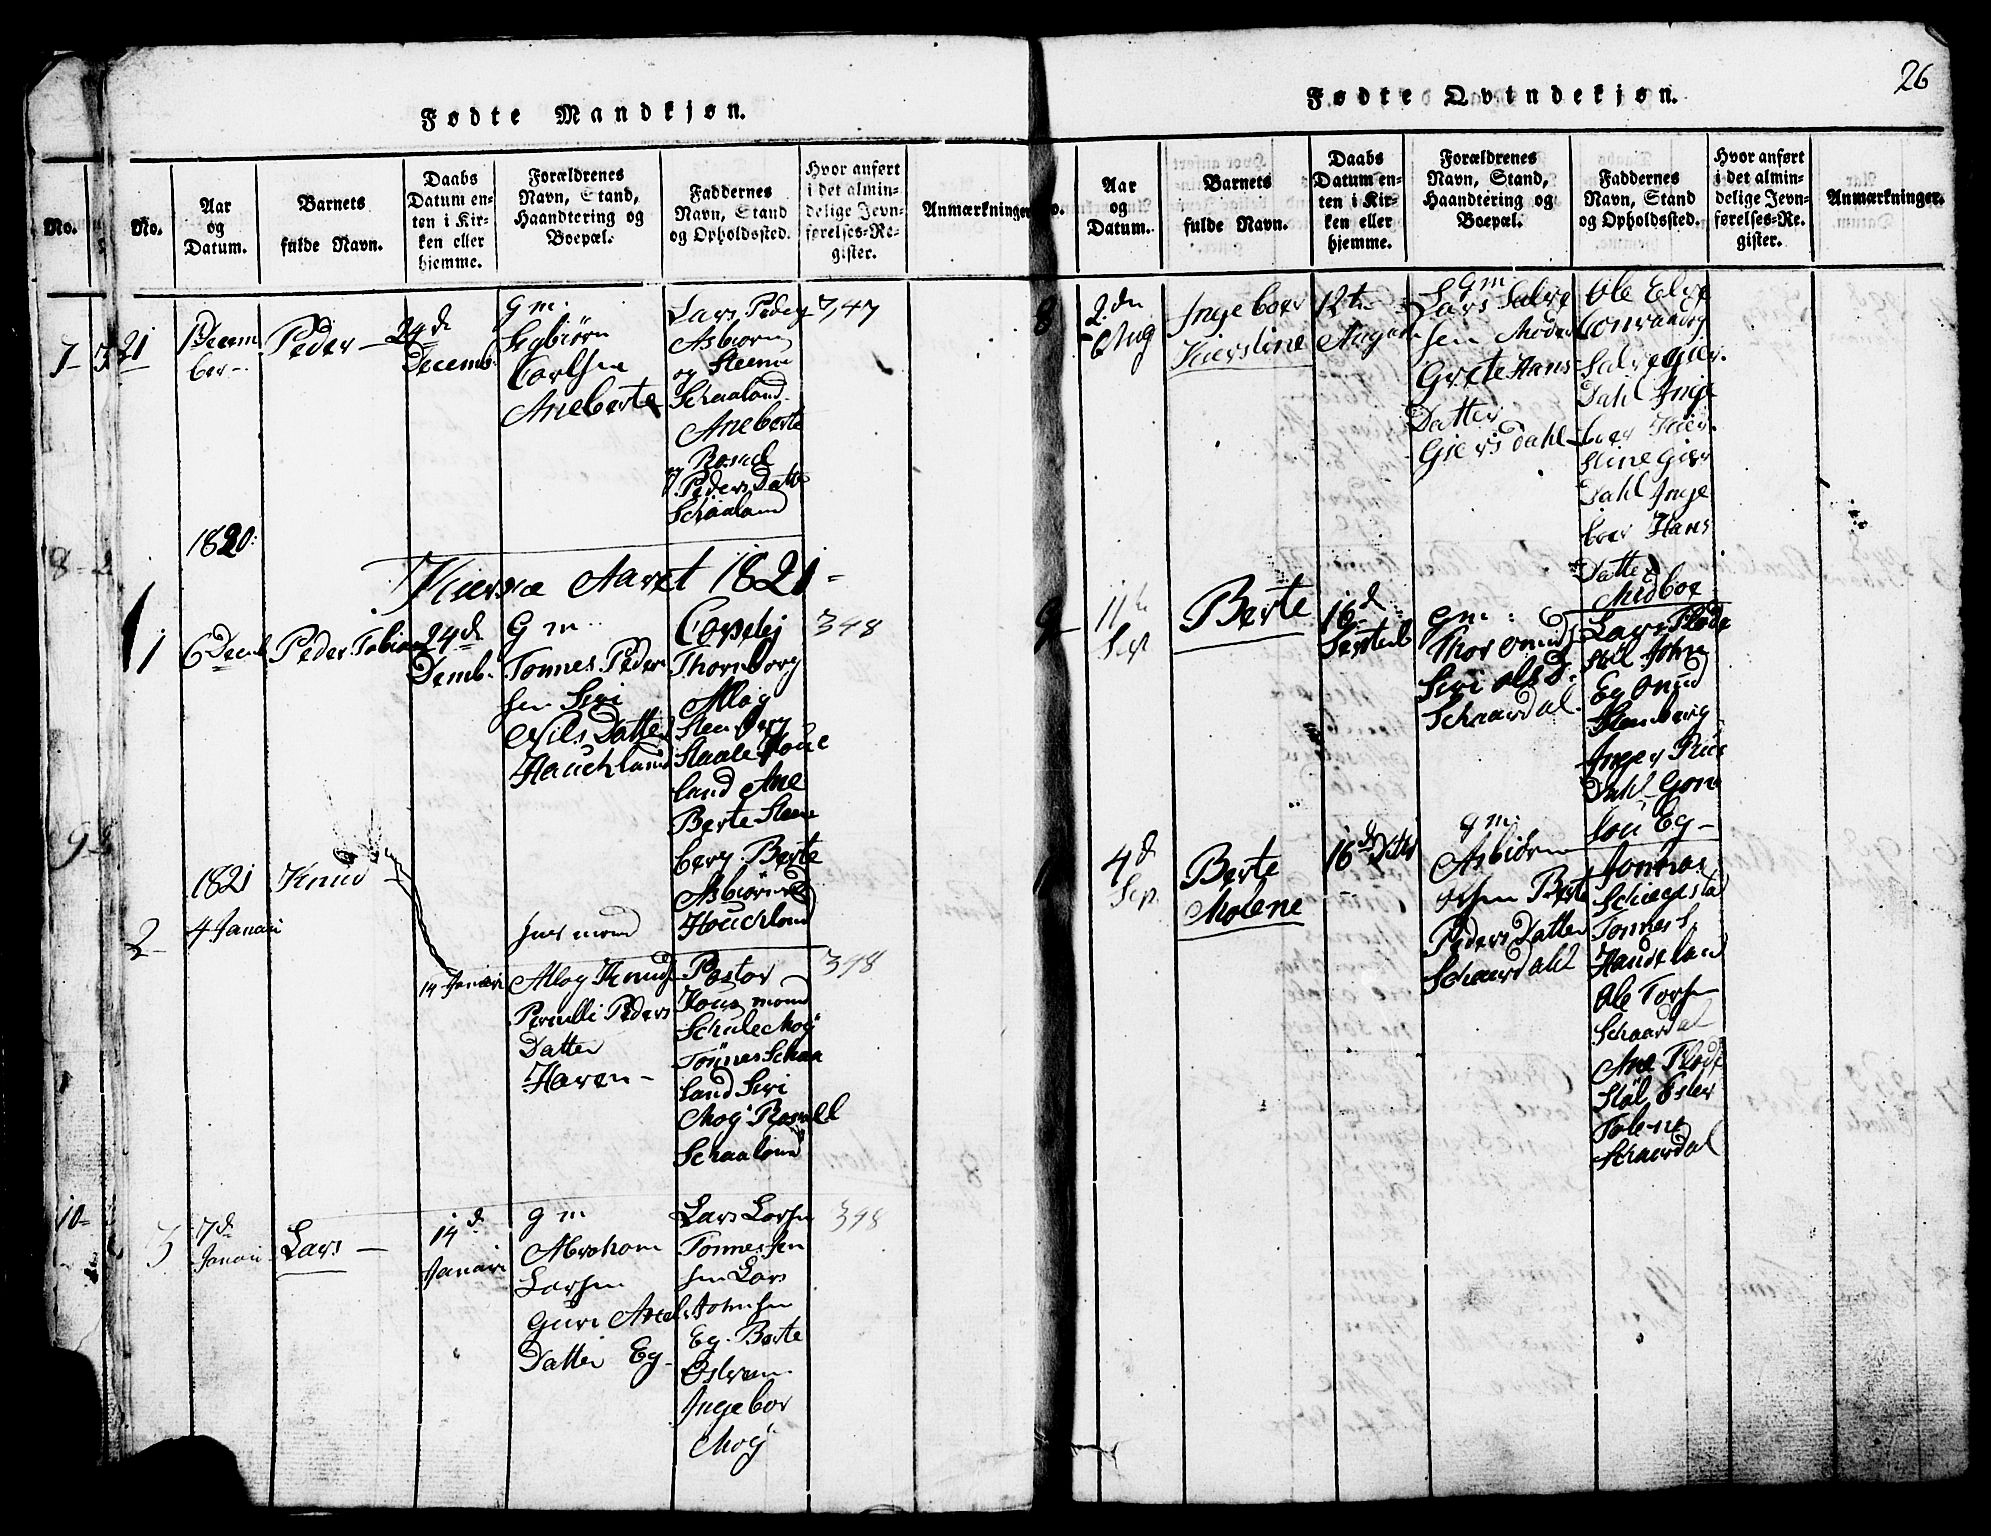 26
Fødte Mandkjøn.
No.
No.
Aar
og
Datum.
Barnets
fulde Navn.
Daabs
Datum en-
ten i Kir-
ken eller
hjemme.
Forældrenes
Navn, Stand,
Haandtering og
Boepæl.
Faddernes
Navn, Stand
og Opholdssted.
Hvor anført
i det almin-
delige Jevn-
førelses-Re-
gister.
Anmærkninger
7
21
Decem
ber
Peder
24d
Decemb.
G m.
Carlsen
Aneberte
Lars Peder
Asbiørn
og Steenn
Schaaland
Aneberte
og Rosael
Peders Datter
Schaaland
347
1820
Aaret 1821
8
1
6 Decmb
Peder Tobias
24d
Demb.
G m.
Tonnes Peder
sen Siri
Nils Datter
Hauchland
Thornborg
Allag
Steenberg
Staale Houe
land Ane
Berte Steen
berg Berte
Asbiørns D
Houchland
348
9
2
1821
4 Januari
Knud
14 Januari
huus mand
Allag Knuds
Pernilli Peders
Datter
Haven
Pastor
Huus mand
Schule Moy
Tönnes Schaa
land Siri
Moy Rosael
Schaaland
348
10
3
7d
Januari
Lars
14d
Januari
g m
Abraham
Larsen
Guri Axels
Datter Eg
Lars Larsen
Tonnessen
sen Lars
Johnsen
Eg. Berte
Ostrem
Ingebor
Moy
348
Fødte Qvindekjøn.
No.
Aar
og
Datum.
Barnets
fulde Navn.
Daabs
Datum en-
ten i Kir-
ken eller
hjemme.
Forældrenes
Navn, Stand,
Haandtering og
Boepæl.
Faddernes
Navn, Stand
og Opholdssted.
Hvor anført
i det almin-
delige Jevn-
førelses-Re-
gister.
Anmærkninger.
8
2den
Aug
Ingeboer
Kierstine
12te
August
G m
Lars Salve
sen Moder
Grete Hans
Datter
Giersdahl
Ole Elve
Conrad og
Salve Gier
Dahl Inge
boer Kier
stine Gier
Dahl Inge
boer Hans
Datter
Midboe
9
11te
Sept
Berte
16d
Septemb
G m:
Thor Onnds
Siri Ols D:
Schaardal.
Lars Plode
stöl John
Eg Onud
Stemberg
Inger Riise
Dahl Gon
lou Eg
4d
Sep
Berte
Molene
16de Dito
g m:
Asbiørn
Olsen Berte
Peders Datter
Schaardahl
Jonnas
Schiepstad
Tonnes
Haudeland
Ole Torsen
Schaardal
Ane Plode
Stöl Ester
Tolene
Schaardal